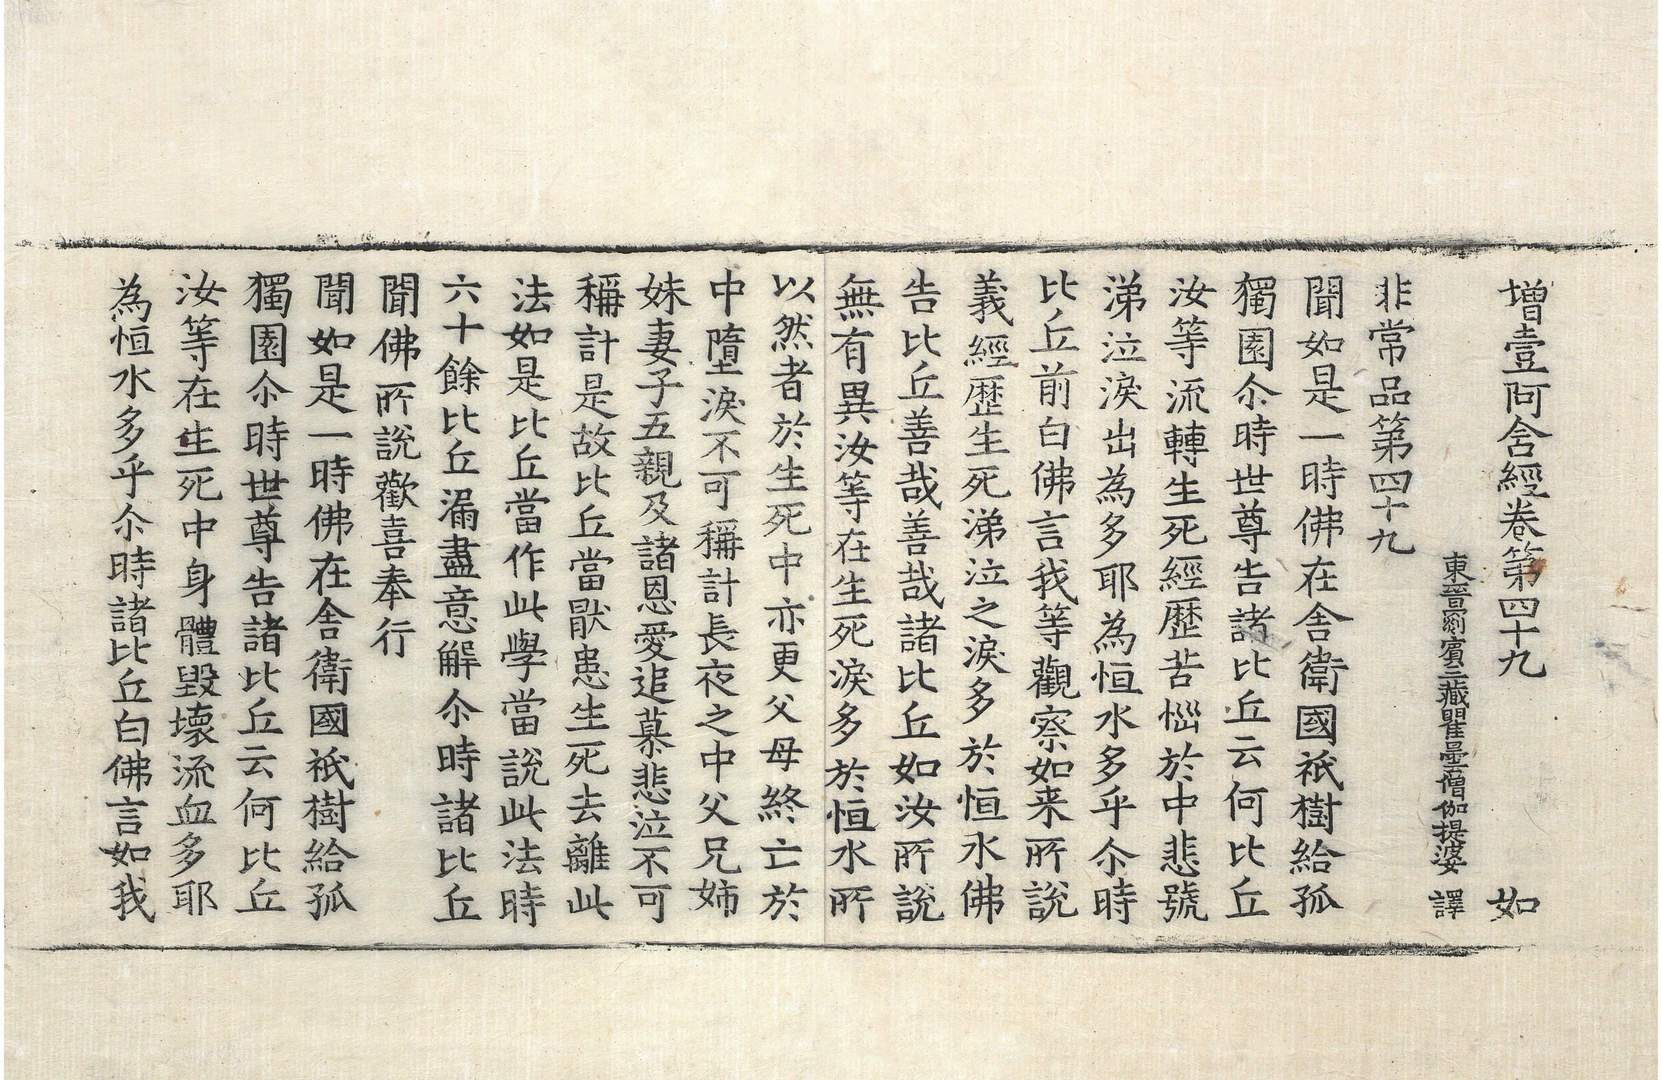 增壹阿含經卷第四十九　如
東晉罽賓三藏瞿曇僧伽提婆　譯
非常品第四十九
聞如是一時佛在舍衛國祇樹給孤
獨園尒時世尊告諸比丘云何比丘
汝等流轉生死經歷苦惱於中悲號
涕泣淚出為多耶為恒水多乎尒時
比丘前白佛言我等觀察如来所說
義經歷生死涕泣之淚多於恒水佛
告比丘善哉善哉諸比丘如汝所說
無有異汝等在生死淚多於恒水所
以然者於生死中亦更父母終亡於
中墮淚不可稱計長夜之中父兄姉
妹妻子五親及諸恩愛追慕悲泣不可
稱計是故比丘當猒患生死去離此
法如是比丘當作此學當說此法時
六十餘比丘漏盡意解尒時諸比丘
聞佛所說歡喜奉行
聞如是一時佛在舍衛國祇樹給孤
獨園尒時世尊告諸比丘云何比丘
汝等在生死中身體毀壞流血多耶
為恒水多乎尒時諸比丘白佛言如我